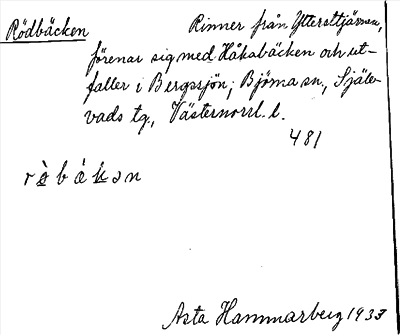 Rödbäcken Rinner från Ytterattjärnen,
förenar sig med Håkabäcken och ut-
faller i Bergsjön; Björna sn, Själe-
vads tg., Västernorrl. l.
481
Asta Hammarberg 1933